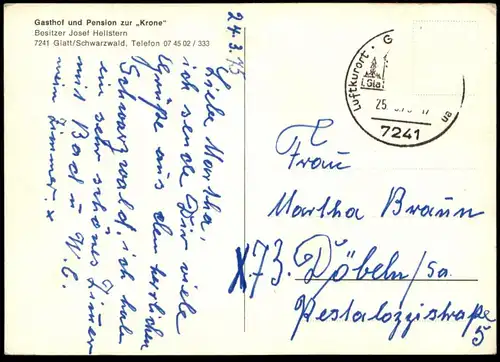 Gasthof und Pension zur „Krone"
Besitzer Josef Hellstern
7241 Glatt/Schwarzwald, Telefon 0 74 82 / 333
24.3.75
Liebe Martha,
ich sende Dir viele
Grüße aus dem herrlichen
Schwarzwald, ich habe
ein sehr schönes Zimmer
mit Bad u. W.C.
mein Zimmer x
Luftkurort · G
7241
Frau
Martha Braun
X 73. Döbeln/Sa.
Pestalozzistraße
5